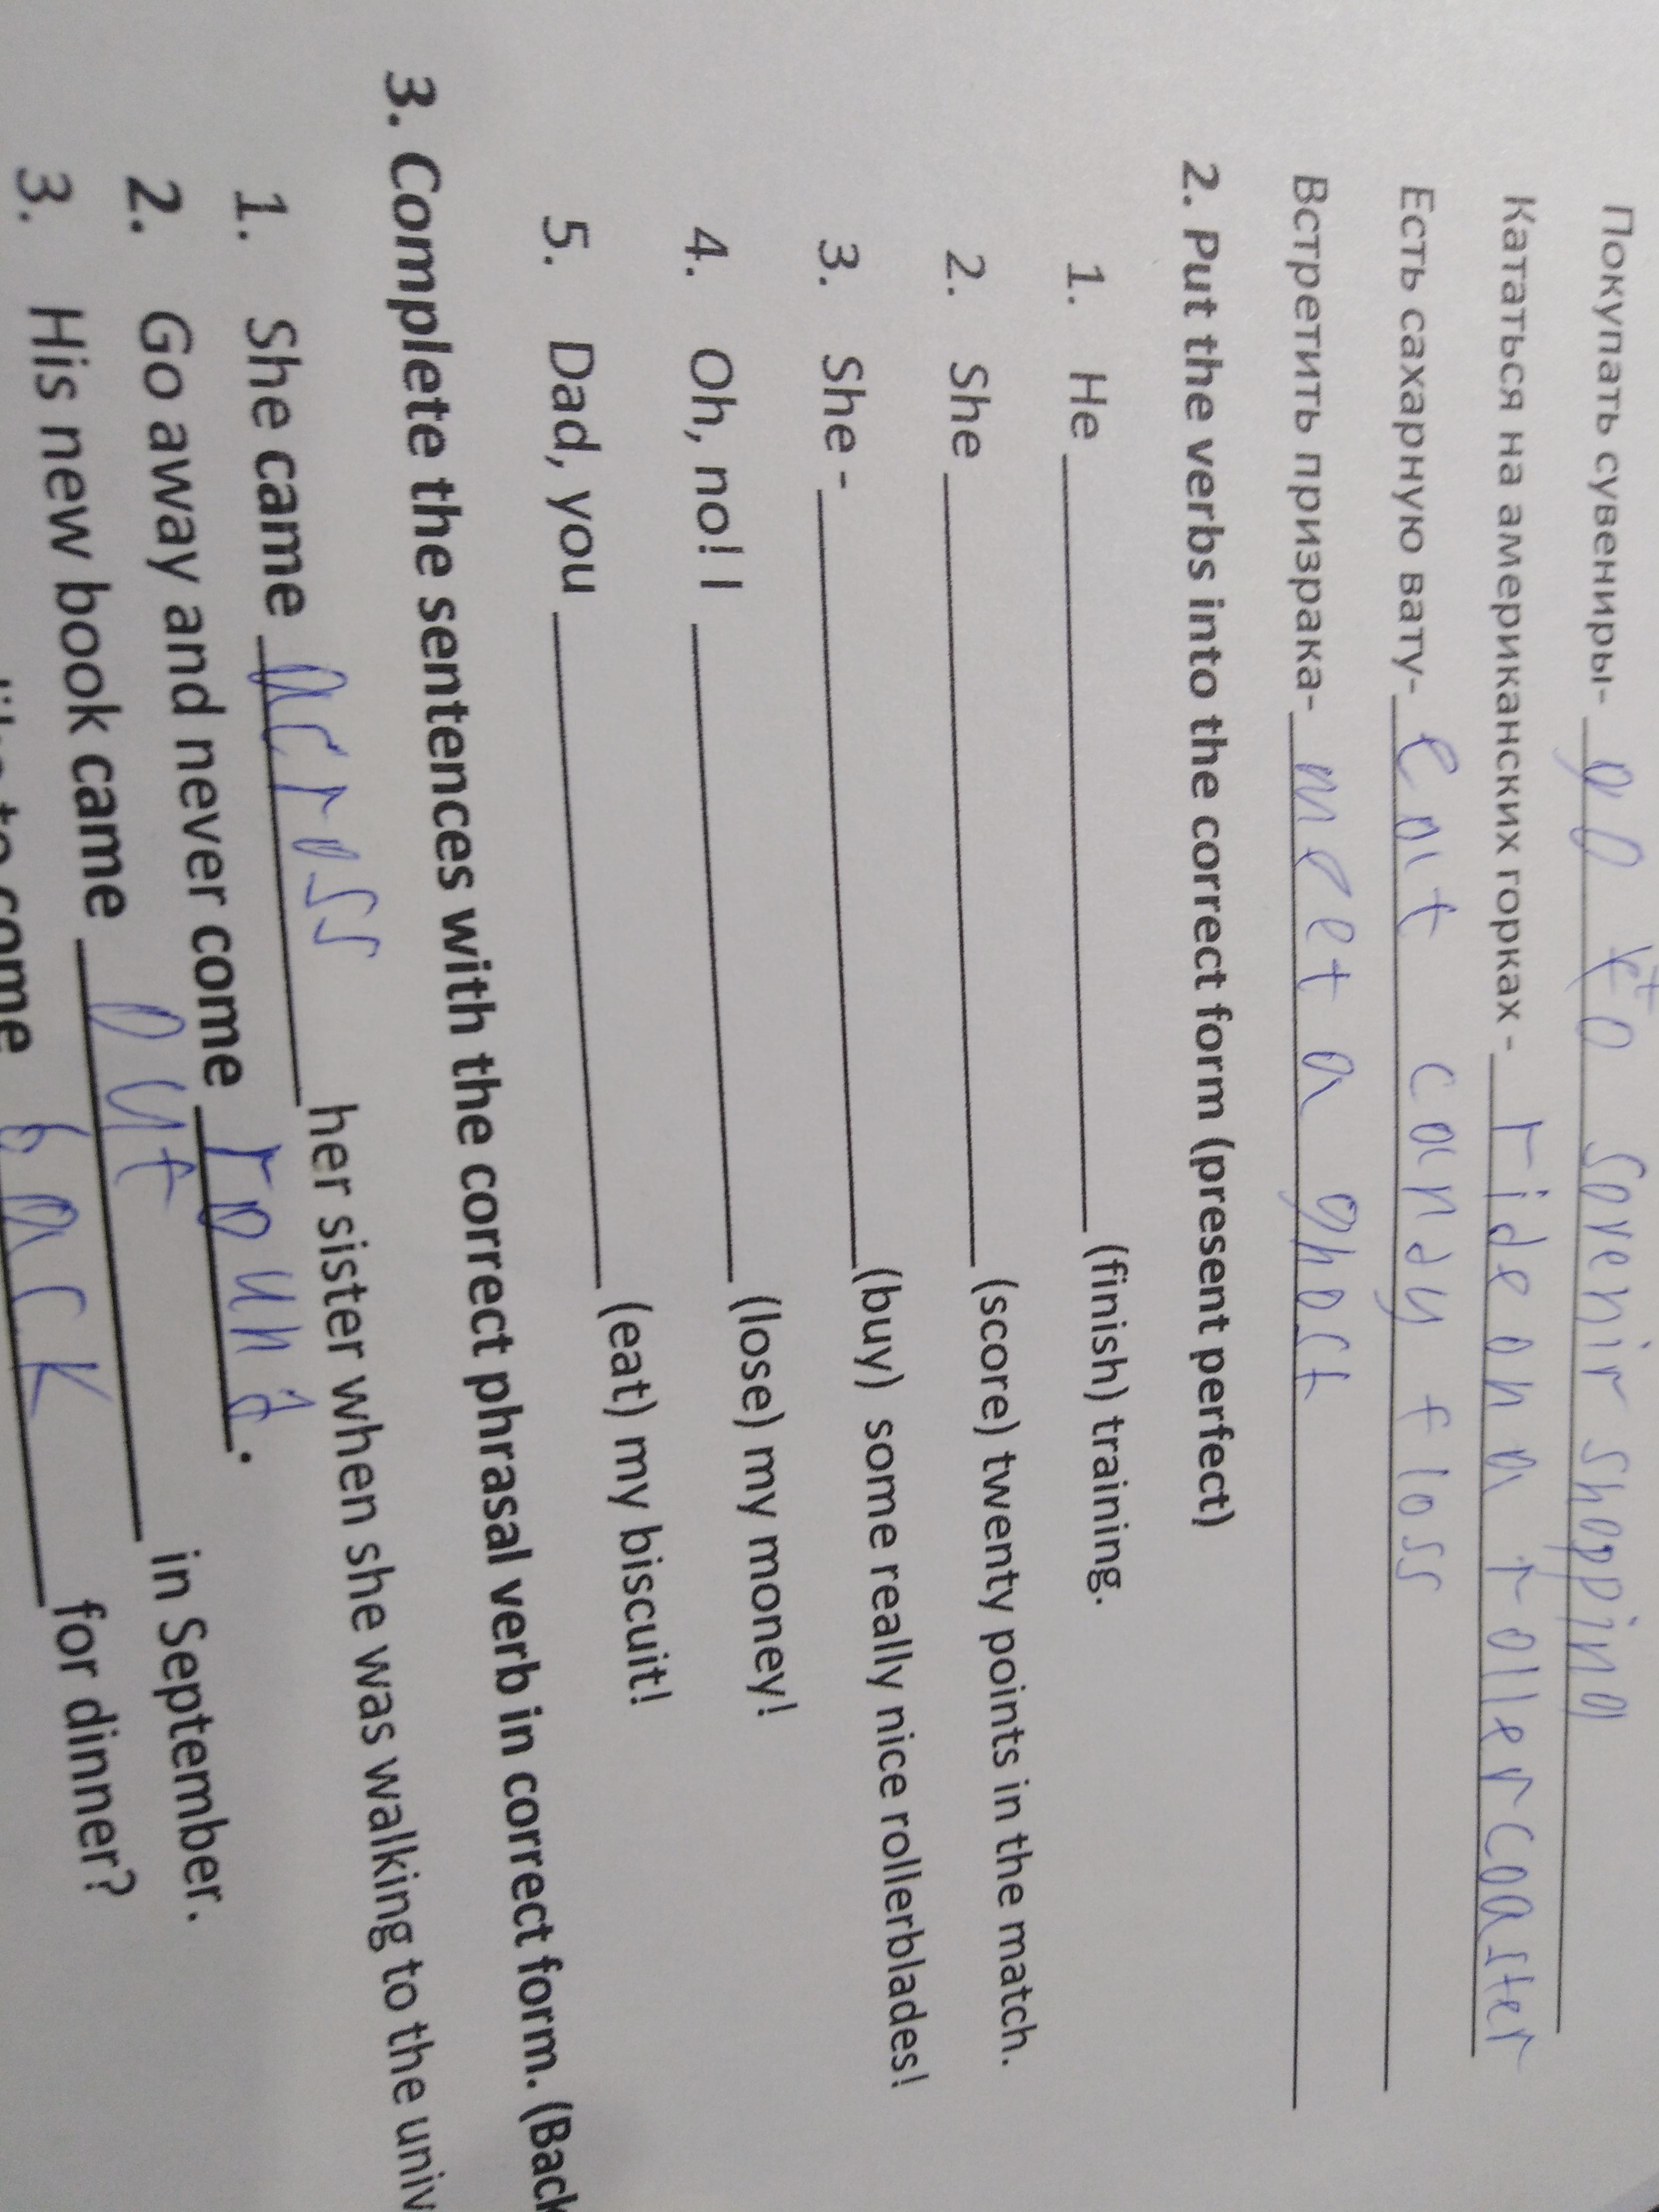 Покупать сувениры- go to sovenir shopping
Кататься на американских горках - ride on a rollercoaster
Есть сахарную вату- eat candy floss
Встретить призрака- meet a ghost
2. Put the verbs into the correct form (present perfect)
1. He ____ (finish) training.
2. She ____ (score) twenty points in the match.
3. She - ____ (buy) some really nice rollerblades!
4. Oh, no! I ____ (lose) my money!
5. Dad, you ____ (eat) my biscuit!
3. Complete the sentences with the correct phrasal verb in correct form. (Back
1. She came across her sister when she was walking to the univ
2. Go away and never come round.
3. His new book came out in September.
like to come back for dinner?